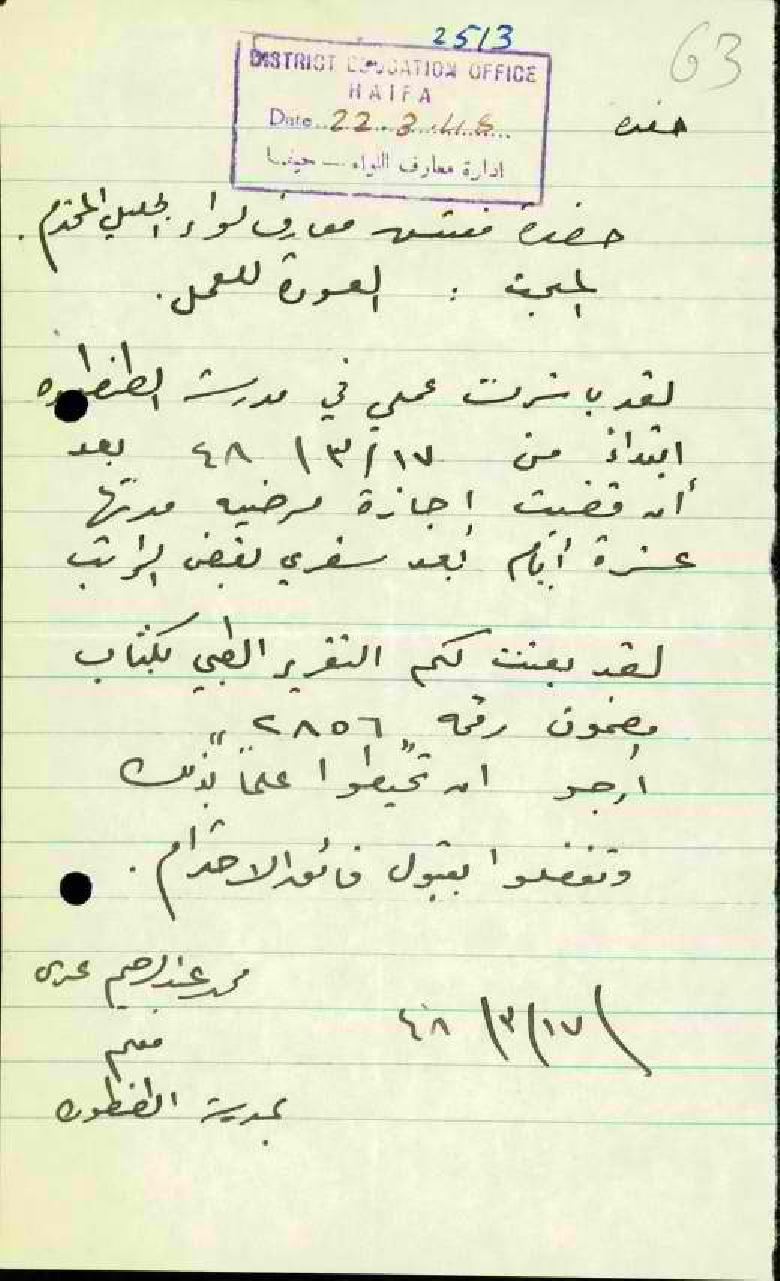 2513
63
DISTRICT EDUCATION OFFICE
HAIFA
Date 22.3.48
ادارة معارف اللواء — حيفا
حضرة مفتش معارف لواء الجليل المحترم.
المبحث : العودة للعمل.
لقد باشرت عملي في مدرسة الطنطوره
ابتداءً من ١٧/٣/٤٨ بعد
أن قضيت اجازة مرضيه مدتها
عشرة أيام بعد سفري لقبض الراتب
لقد بعثت لكم التقرير الطبي بكتاب
مضمون رقمه "٢٨٥٦"
أرجو ان تحيطوا علماً بذلك
وتفضلوا بقبول فائق الاحترام.
١٧/٣/٤٨
محمد عبدالرحيم
معلم
بمدرسة الطنطوره